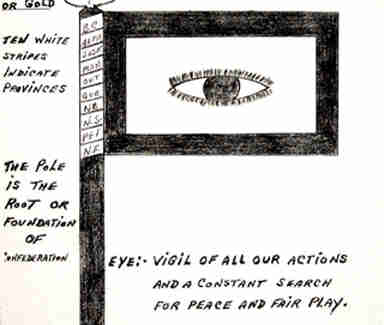 OR GOLD
TEN WHITE
STRIPES
INDICATE
PROVINCES
B.C.
ALTA
SASK
MAN
ONT
QUE
N.B.
N.S.
P.E.I
N.F.
THE POLE
IS THE
ROOT OR
FOUNDATION
OF
CONFEDERATION
EYE:- VIGIL OF ALL OUR ACTIONS
AND A CONSTANT SEARCH
FOR PEACE AND FAIR PLAY.